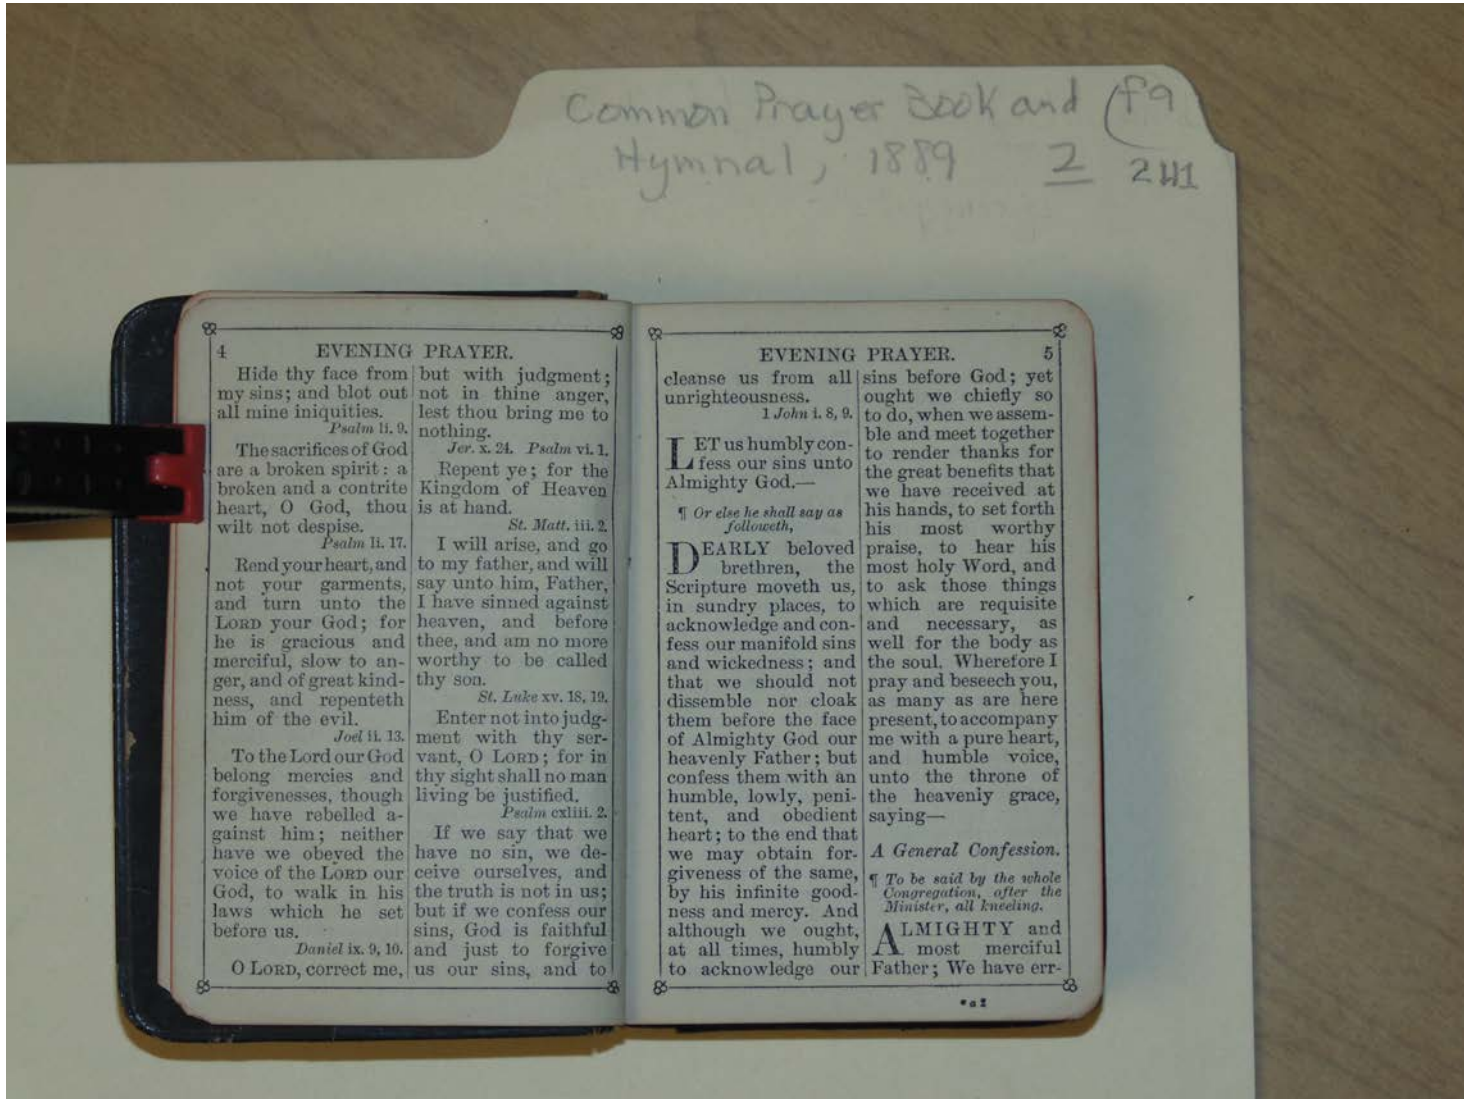 Common Prayer Book and (f9
Hymnal, 1889 2 241
4 EVENING PRAYER.
Hide thy face from
my sins; and blot out
all mine iniquities.
Psalm li. 9.
The sacrifices of God
are a broken spirit: a
broken and a contrite
heart, O God, thou
wilt not despise.
Psalm li. 17.
Rend your heart, and
not your garments,
and turn unto the
LORD your God; for
he is gracious and
merciful, slow to an-
ger, and of great kind-
ness, and repenteth
him of the evil.
Joel ii. 13.
To the Lord our God
belong mercies and
forgivenesses, though
we have rebelled a-
gainst him; neither
have we obeyed the
voice of the LORD our
God, to walk in his
laws which he set
before us.
Daniel ix. 9, 10.
O LORD, correct me,
but with judgment;
not in thine anger,
lest thou bring me to
nothing.
Jer. x. 24. Psalm vi. 1.
Repent ye; for the
Kingdom of Heaven
is at hand.
St. Matt. iii. 2.
I will arise, and go
to my father, and will
say unto him, Father,
I have sinned against
heaven, and before
thee, and am no more
worthy to be called
thy son.
St. Luke xv. 18, 19.
Enter not into judg-
ment with thy ser-
vant, O LORD; for in
thy sight shall no man
living be justified.
Psalm cxliii. 2.
If we say that we
have no sin, we de-
ceive ourselves, and
the truth is not in us;
but if we confess our
sins, God is faithful
and just to forgive
us our sins, and to
EVENING PRAYER. 5
cleanse us from all
unrighteousness.
1 John i. 8, 9.
LET us humbly con-
fess our sins unto
Almighty God.—
¶ Or else he shall say as
followeth,
DEARLY beloved
brethren, the
Scripture moveth us,
in sundry places, to
acknowledge and con-
fess our manifold sins
and wickedness; and
that we should not
dissemble nor cloak
them before the face
of Almighty God our
heavenly Father; but
confess them with an
humble, lowly, peni-
tent, and obedient
heart; to the end that
we may obtain for-
giveness of the same,
by his infinite good-
ness and mercy. And
although we ought,
at all times, humbly
to acknowledge our
sins before God; yet
ought we chiefly so
to do, when we assem-
ble and meet together
to render thanks for
the great benefits that
we have received at
his hands, to set forth
his most worthy
praise, to hear his
most holy Word, and
to ask those things
which are requisite
and necessary, as
well for the body as
the soul. Wherefore I
pray and beseech you,
as many as are here
present, to accompany
me with a pure heart,
and humble voice,
unto the throne of
the heavenly grace,
saying—
A General Confession.
¶ To be said by the whole
Congregation, after the
Minister, all kneeling.
ALMIGHTY and
most merciful
Father; We have err-